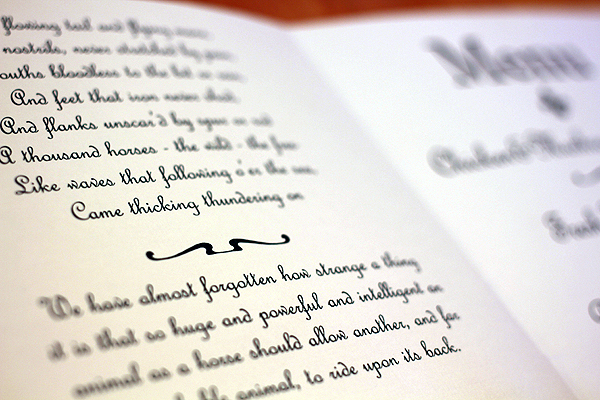 flowing tail and flying
nostrils, never
ouths bloodless to the bit or
And feet that iron never shod,
And flanks unscar'd by spur or rod
A thousand horses - the wild - the free
Like waves that following o'er the sea,
Came thicking thundering on
We have almost forgotten how strange a thing
it is that so huge and powerful and intelligent an
animal as a horse should allow another, and far
animal, to ride upon its back.
Menu